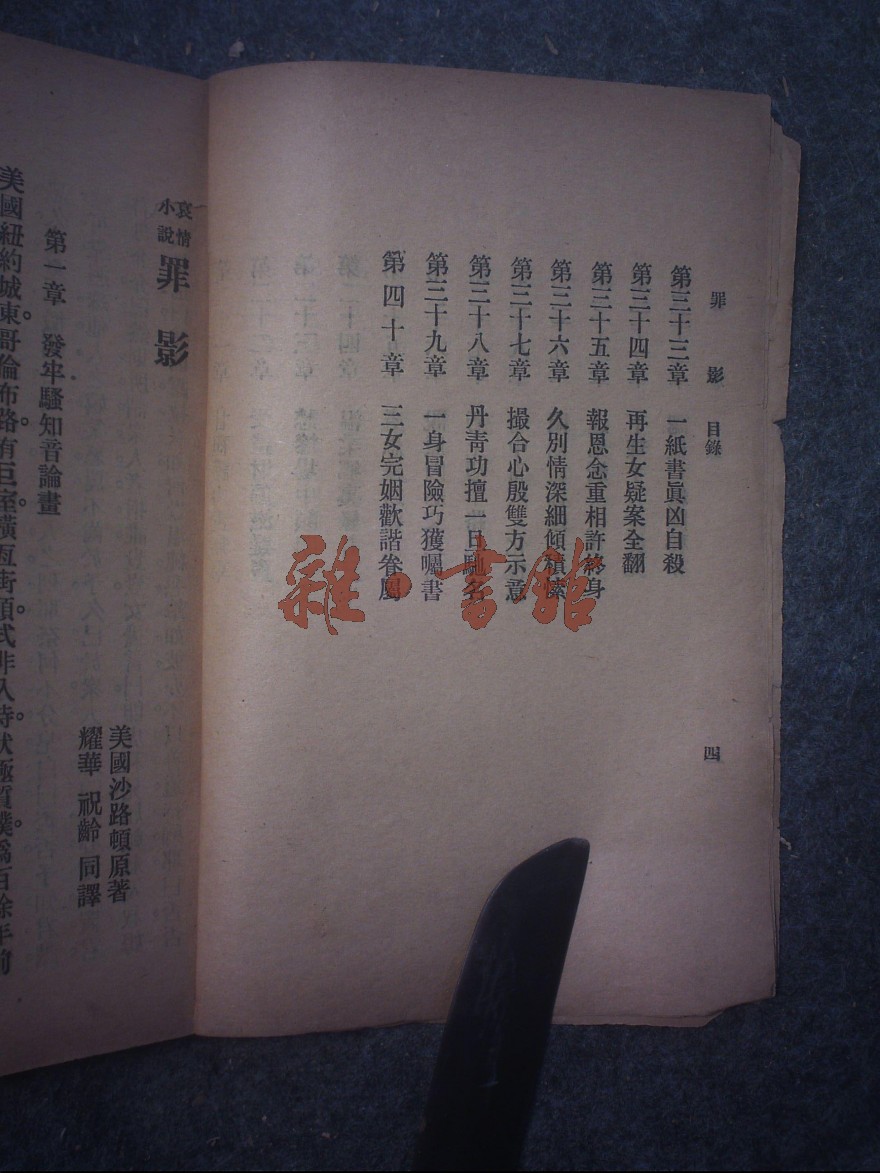 罪影 目錄
第三十三章 一紙書眞凶自殺
第三十四章 再生女疑案全翻
第三十五章 報恩念重相許終身
第三十六章 久別情深細傾積愫
第三十七章 撮合心殷雙方示意
第三十八章 丹靑功擅一旦馳名
第三十九章 一身冒險巧獲囑書
第四十章 三女完姻歡諧眷屬
四
雜·書館
哀情小說 罪影
美國沙路頓原著
耀華 祝齡 同譯
第一章 發牢騷知音論畫
美國紐約城東。哥倫布路。有巨室。橫亙街頭。式非入時。狀極質樸。爲百餘年前